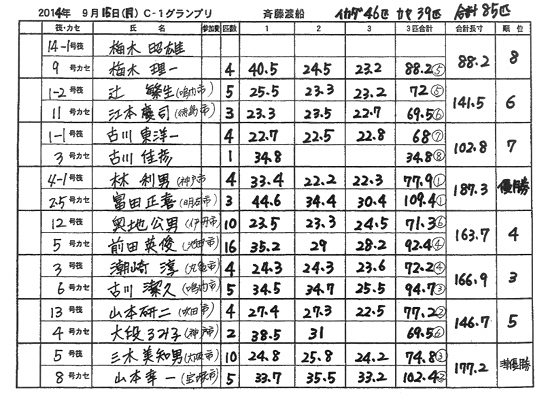 2014年 9月15日(月) C-1グランプリ 斉藤渡船 イカダ46匹 カセ39匹 合計85匹
筏・カセ 氏 名 参加費 匹数 1 2 3 3匹合計 合計長寸 順 位
14-1号筏 梅木 昭雄 88.2 8
9 号カセ 梅木 理一 4 40.5 24.5 23.2 88.2⑤
1-2 号筏 辻 繁生(鳴門市) 5 25.5 23.3 23.2 72⑤ 141.5 6
11 号カセ 江本 慶司 3 23.3 23.5 22.7 69.5⑥
1-1 号筏 古川 東洋一 4 22.7 22.5 22.8 68⑦ 102.8 7
3 号カセ 古川 佳彦 1 34.8 34.8⑧
4-1号筏 林 利男(神戸市) 4 33.4 22.2 22.3 77.9① 187.3 優勝
25 号カセ 富田 正喜(明石市) 3 44.6 34.4 30.4 109.4①
12 号筏 奥地 公男(伊丹市) 10 23.5 23.3 24.5 71.3⑥ 163.7 4
5 号カセ 前田 英俊(池田市) 16 35.2 29 28.2 92.4④
3 号筏 潮崎 淳(丸亀市) 4 24.3 24.3 23.6 72.2④ 166.9 3
6 号カセ 古川 潔久(鳴門市) 5 34.5 34.7 25.5 94.7③
13 号筏 山本 研二(吹田市) 4 27.4 27.3 22.5 77.2② 146.7 5
4 号カセ 大段 るみ子(神戸市) 2 38.5 31 69.5⑥
5 号筏 三木 美知男(大阪市) 10 24.8 25.8 24.2 74.8③ 177.2 準優勝
8 号カセ 山本 幸一(宝塚市) 5 33.7 35.5 33.2 102.4②